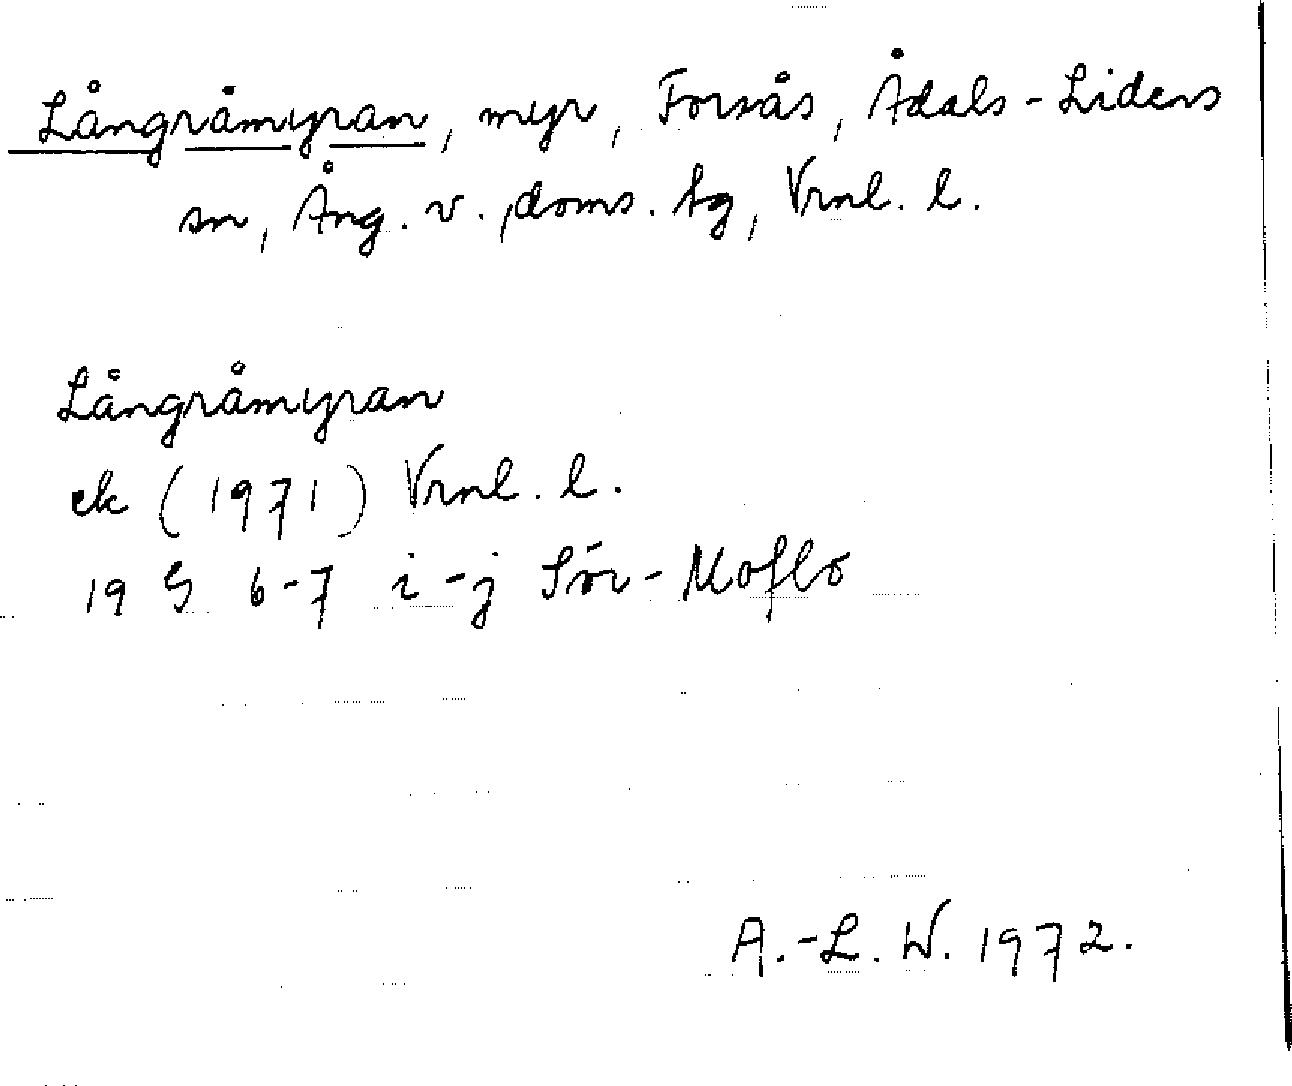 Långråmyran, myr, Forsås, Ådals-Lidens
sn, Ång. v., doms. tg, Vrnl. l.
Långråmyran
ek (1971) Vrnl. l.
19 G 6-7 i-j Sör-Moflo
A.-L. W. 1972.